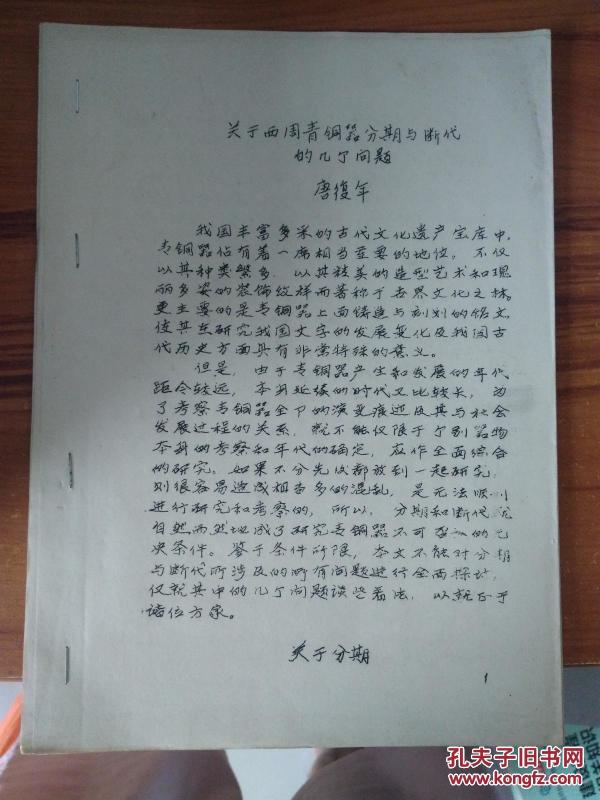 关于西周青铜器分期与断代
的几个问题
唐復年
我国丰富多采的古代文化遗产宝库中,
青铜器佔有着一席相当重要的地位。不仅
以其种类繁多、以其精美的造型艺术和瑰
丽多姿的装饰纹样而著称于世界文化之林。
更主要的是青铜器上面铸造与刻划的铭文,
使其在研究我国文字的发展变化及我国古
代历史方面具有非常特殊的意义。
但是,由于青铜器产生和发展的年代
距今较远,本身延续的时代又比较长,为
了考察青铜器全部的演变痕迹及其与社会
发展过程的关系,就不能仅限于个别器物
本身的考察和年代的确定,应作全面综合
的研究。如果不分先后都放到一起研究,
则很容易造成相当多的混乱,是无法顺利
进行研究和考察的,所以,分期和断代就
自然而然地成了研究青铜器不可或缺的先
决条件。鉴于条件所限,本文不能对分期
与断代所涉及的所有问题进行全面探讨,
仅就其中的几个问题谈些看法,以就正于
诸位方家。
关于分期
1
孔夫子旧书网
www.kongfz.com